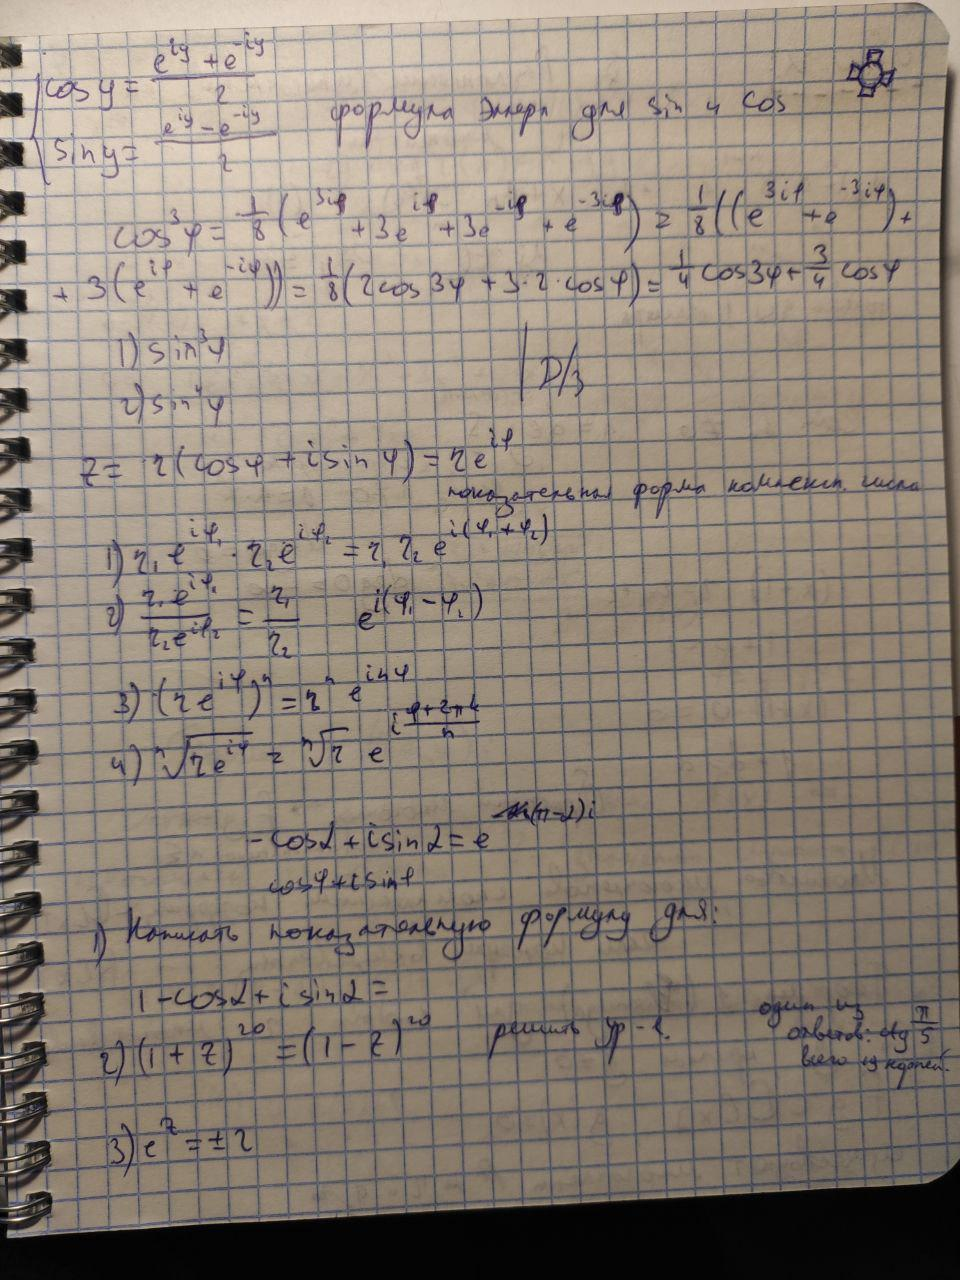 cos y = (e^{iy} + e^{-iy})/2
формула Эйлера для sin и cos
sin y = (e^{iy} - e^{-iy})/2
cos³φ = 1/8 (e^{3iφ} + 3e^{iφ} + 3e^{-iφ} + e^{-3iφ}) = 1/8 ((e^{3iφ} + e^{-3iφ}) +
+ 3(e^{iφ} + e^{-iφ})) = 1/8 (2cos3φ + 3·2·cosφ) = 1/4 cos3φ + 3/4 cosφ
1) sin³φ
2) sin⁴φ
Д/з
z = r(cosφ + i sinφ) = re^{iφ}
показательная форма комплексн. числа
1) r₁e^{iφ₁} · r₂e^{iφ₂} = r₁r₂e^{i(φ₁+φ₂)}
2) r₁e^{iφ₁}/r₂e^{iφ₂} = r₁/r₂ e^{i(φ₁-φ₂)}
3) (re^{iφ})ⁿ = rⁿ e^{inφ}
4) ⁿ√(re^{iφ}) = ⁿ√r e^{i(φ+2πk)/n}
-cosα + i sinα = e^{(π-α)i}
cosφ + i sinφ
1) Написать показательную формулу для:
1 - cosα + i sinα =
2) (1 + z)²⁰ = (1 - z)²⁰ решить ур-е.
один из
ответов: π/5
всего 19 корней.
3) e^z = ± 2